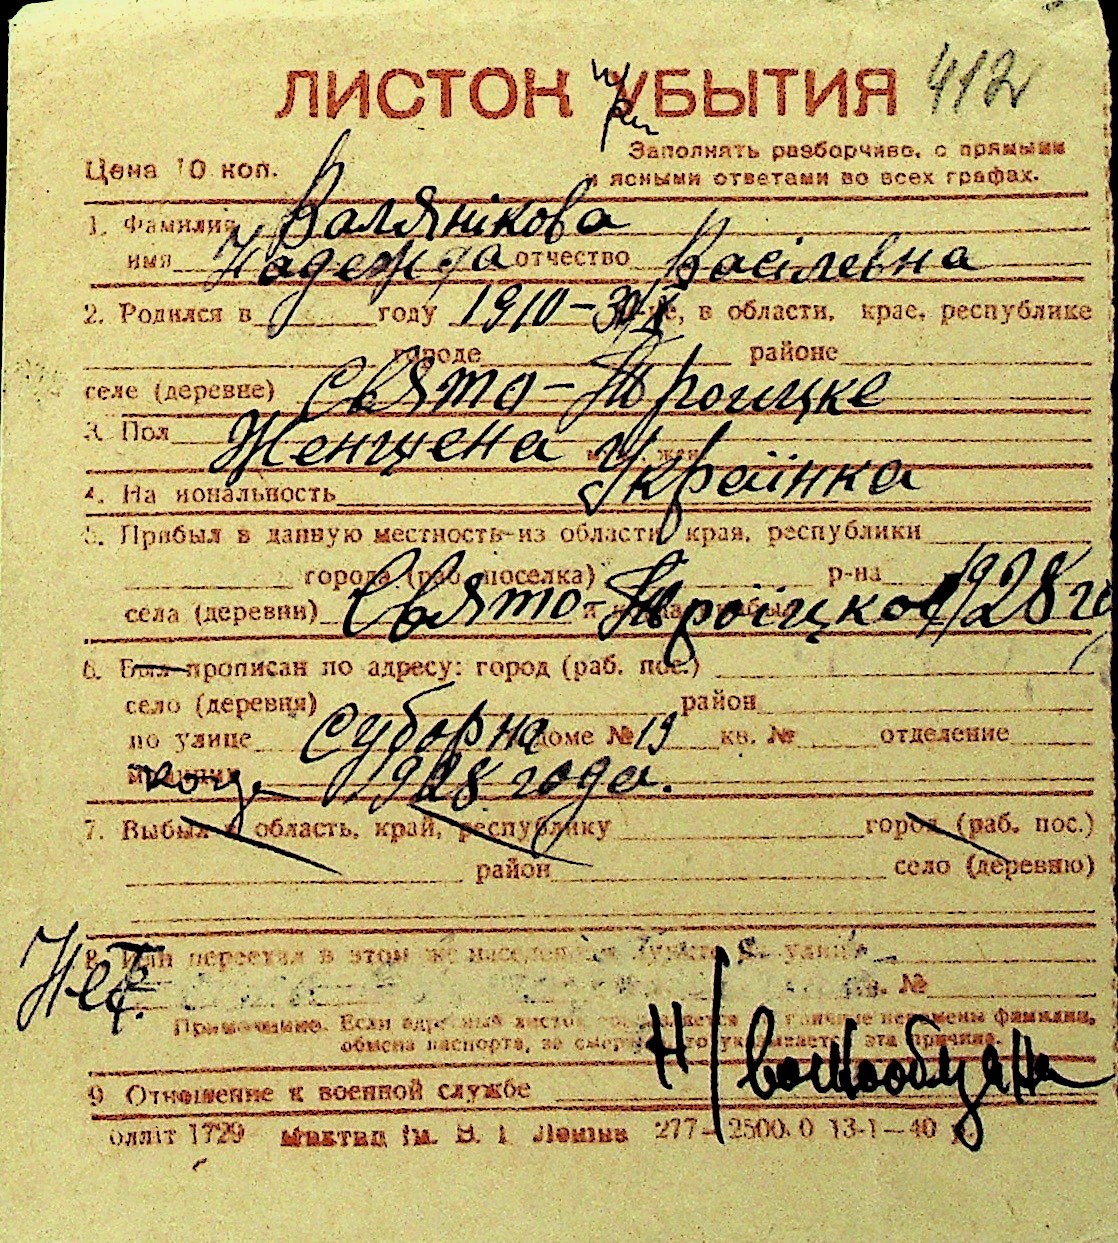 ЛИСТОК УБЫТИЯ 412
при
Цена 10 коп.
Заполнять разборчиво, с прямыми
и ясными ответами во всех графах.
1. Фамилия Валянікова
имя Надежда отчество Васілевна
2. Родился в году 1910-30/X , в области, крае, республике
городе районе
селе (деревне) Свято-Троицке
3. Пол Женщена
4. Национальность Украінка
5. Прибыл в данную местность из области, края, республики
города (раб. поселка) р-на
села (деревни) Свято-Троіцкое 1928 го
6. Был прописан по адресу: город (раб. пос.)
село (деревня) район
по улице Суборна доме № 19 кв. № отделение
милиции 1928 года.
7. Выбыл в область, край, республику город (раб. пос.)
район село (деревню)
Нет.
8. Или переехал в этом же населенном пункте по улице
кв. №
Примечание. Если адресный листок составляется перемены фамилии,
обмена паспорта, за смертью, то указывается эта причина.
9 Отношение к военной службе Н/военнообязана
Облліт 1729 ім. В. І. Леніна 277—2500.0 13-1—40 р.